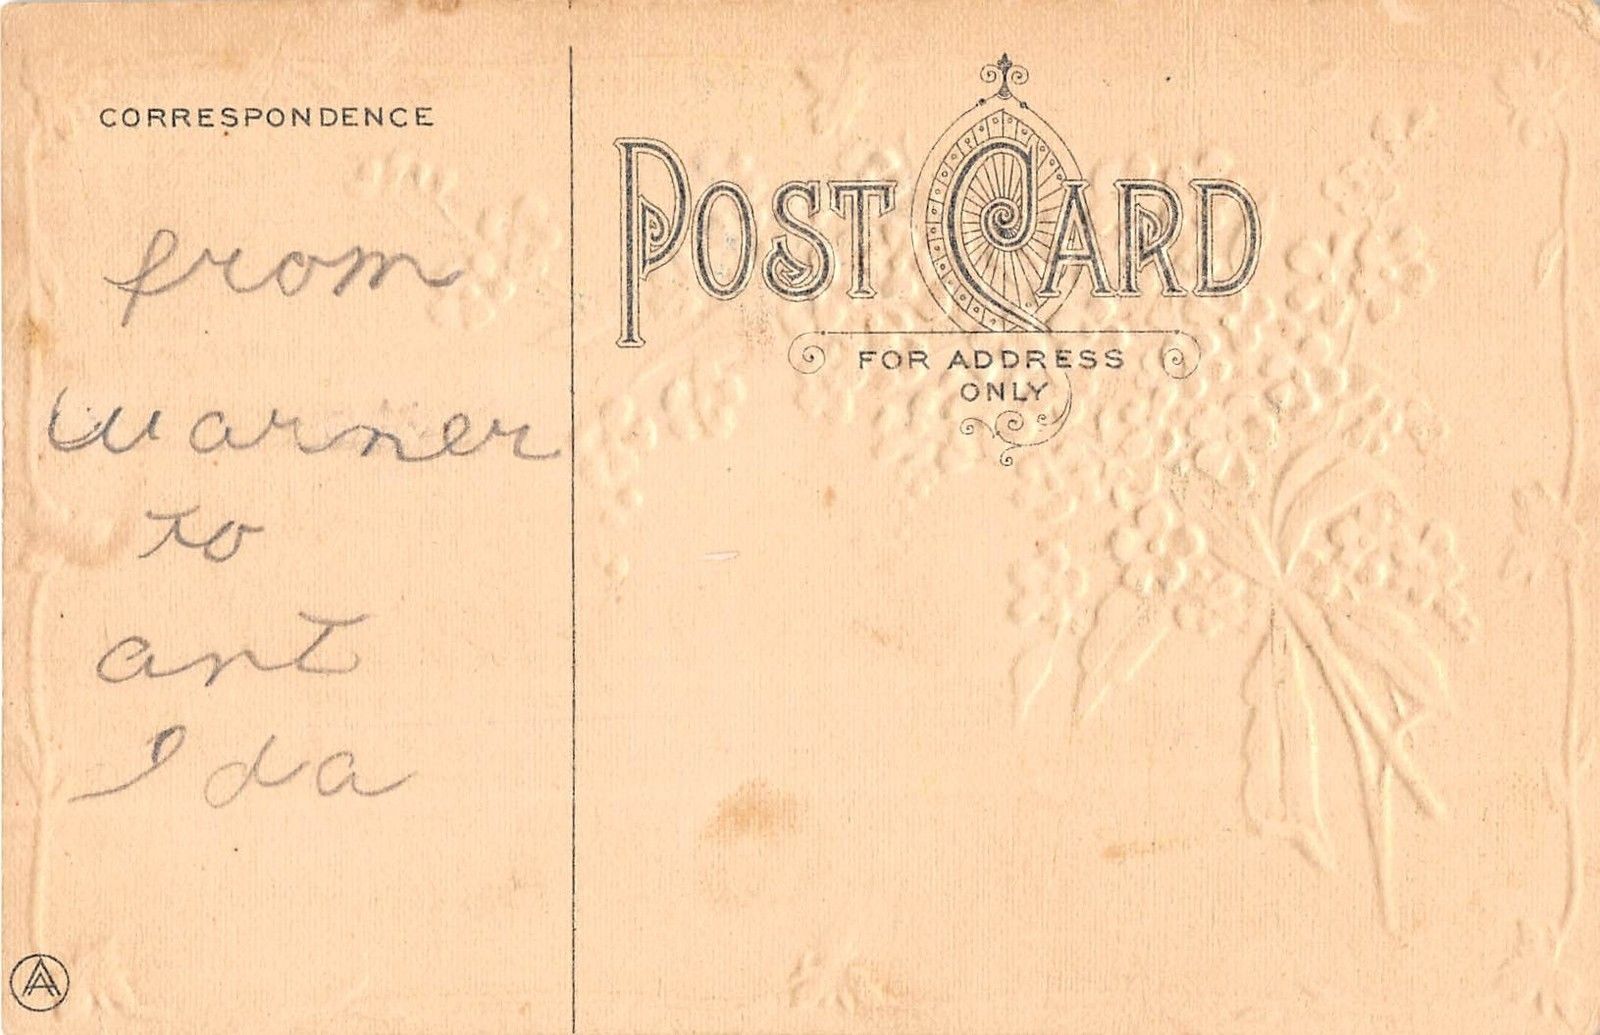 CORRESPONDENCE
from
warner
to
ant
Ida
POST CARD
FOR ADDRESS
ONLY
AA